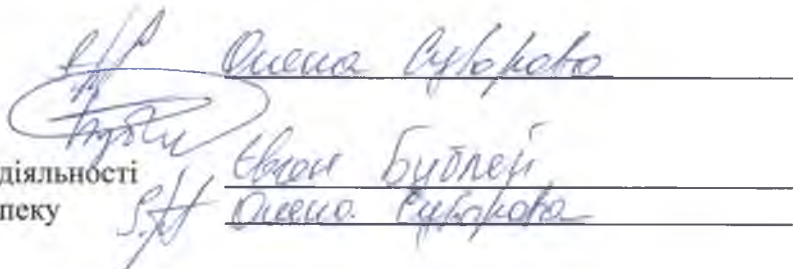 Олена Суворова
діяльності Євген Бублей
пеку Олена Суворова